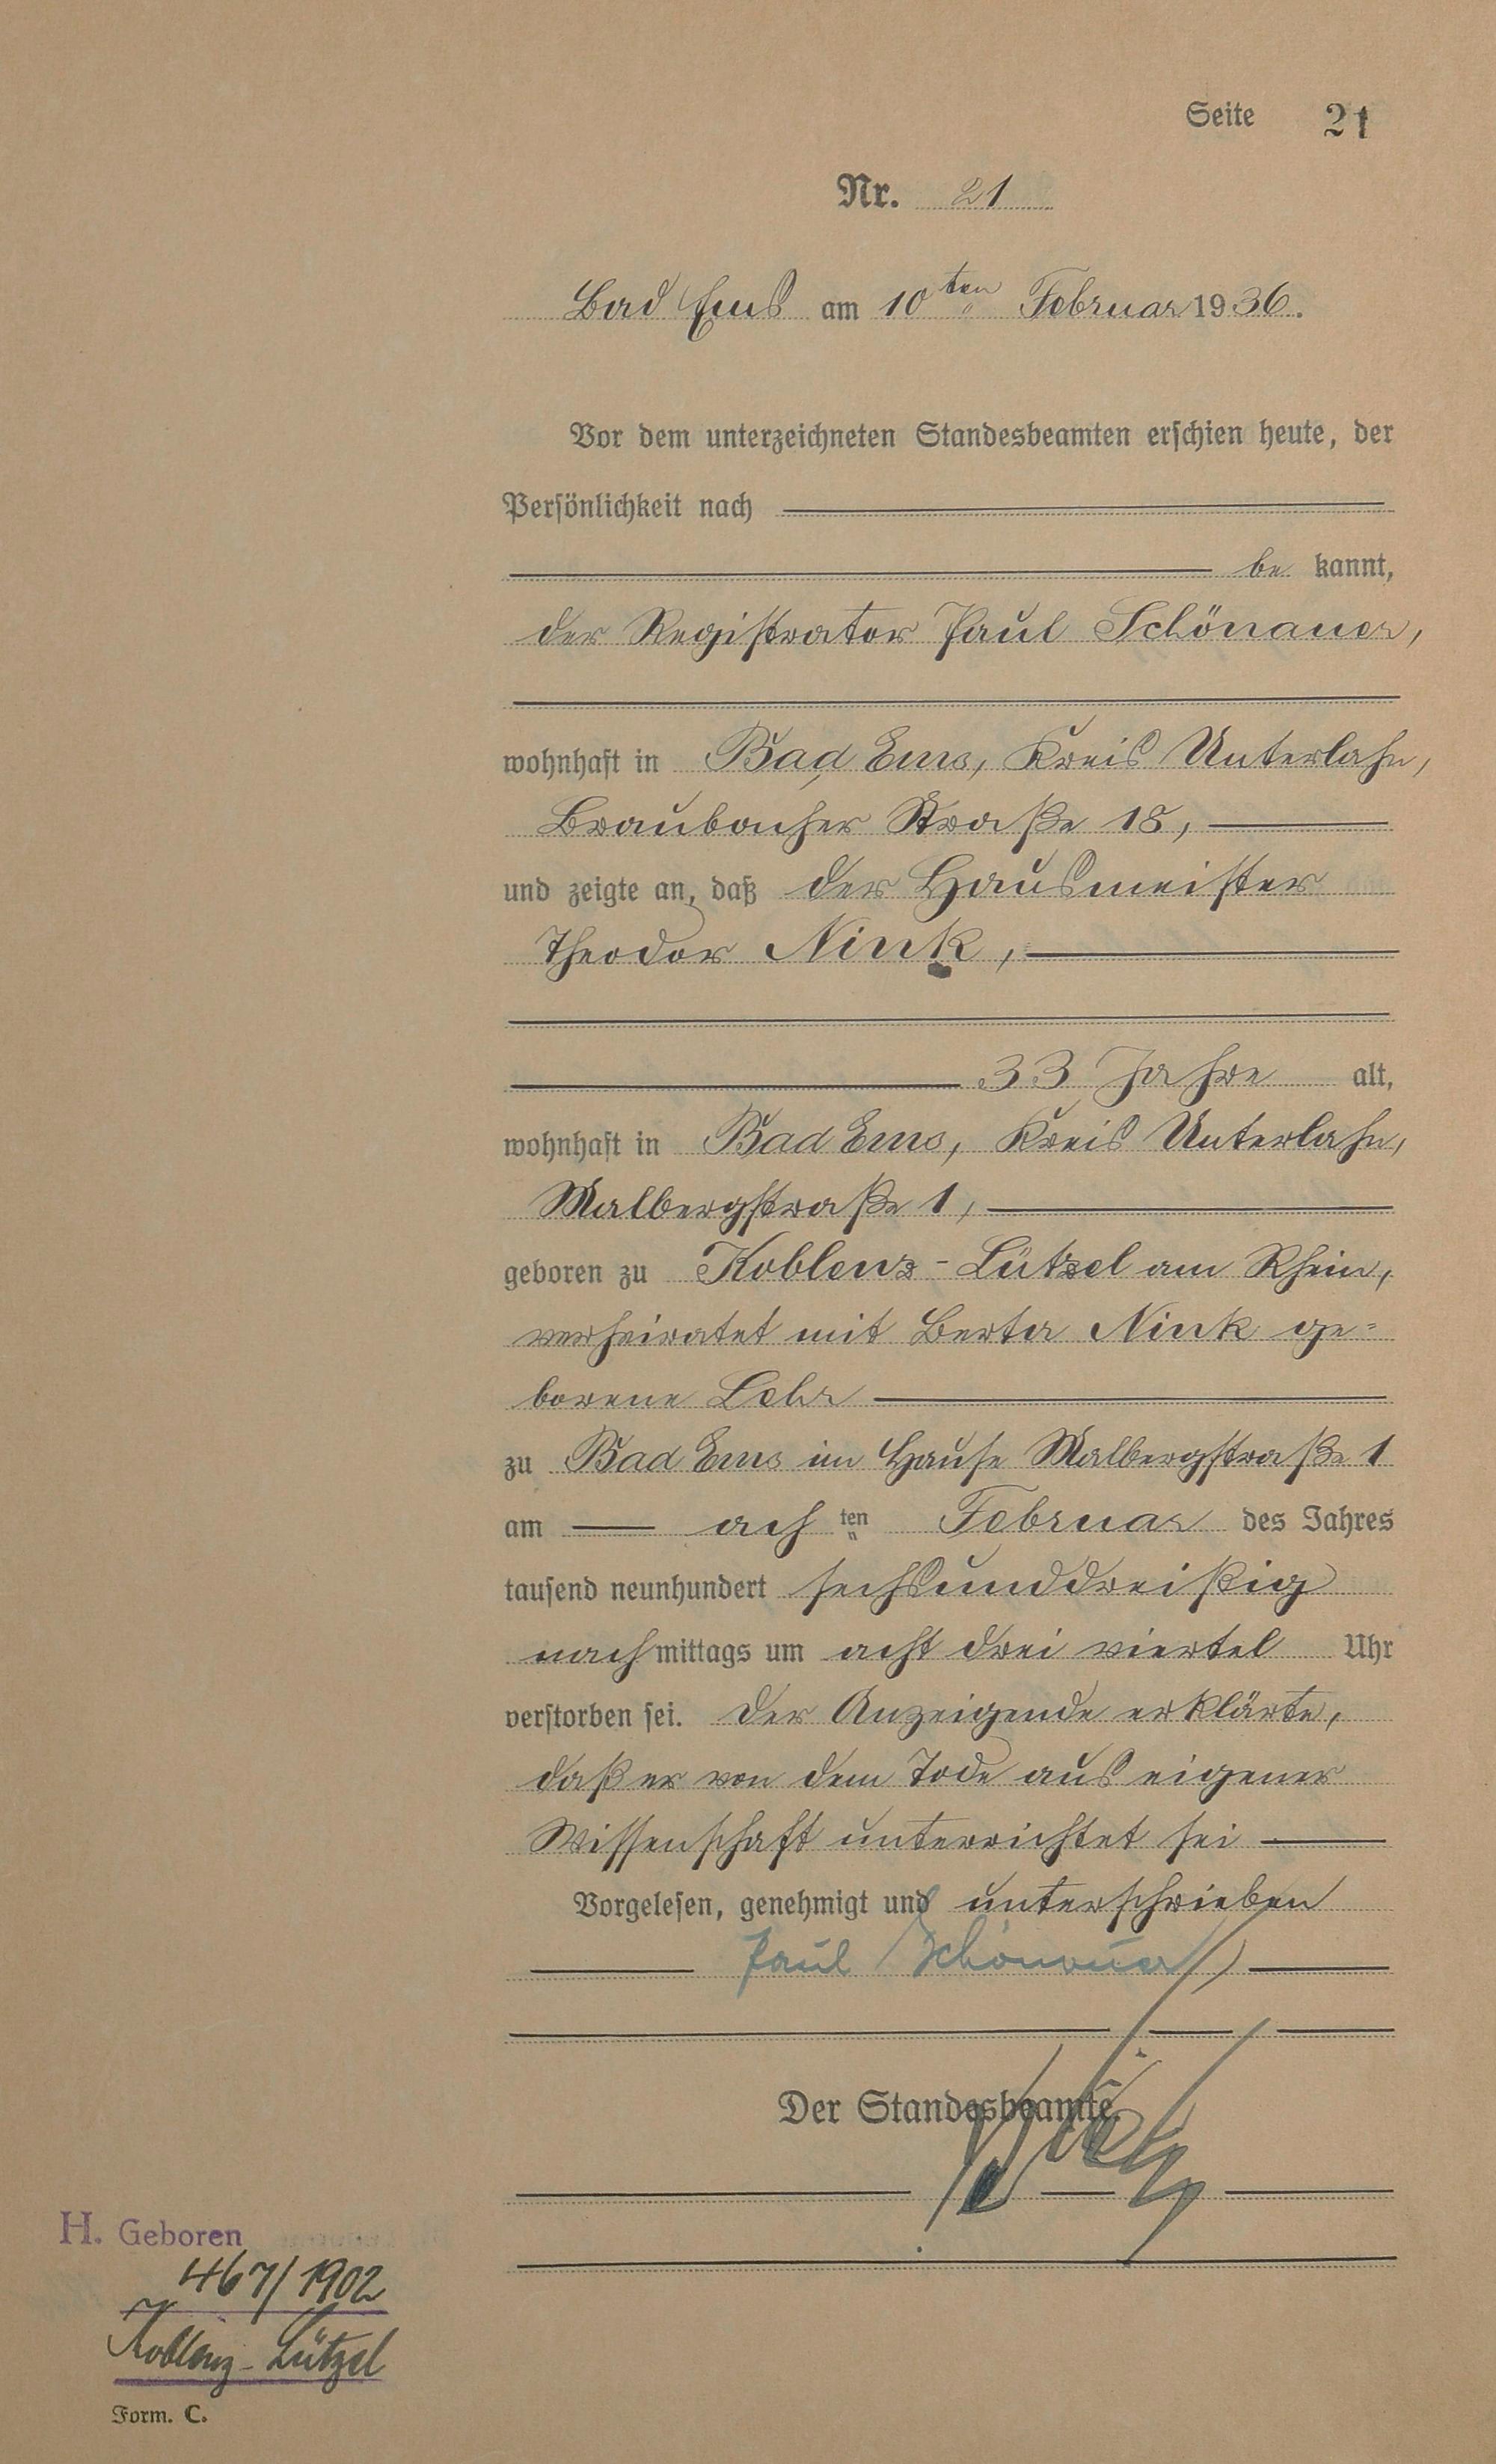 Seite 21
Nr. 21
Bad Ems am 10ten Februar 1936.
Vor dem unterzeichneten Standesbeamten erschien heute, der
Persönlichkeit nach
be kannt,
der Registrator Paul Schönauer,
wohnhaft in Bad Ems, Kreis Unterlahn,
Braubacher Straße 18,
und zeigte an, daß der Hausmeister
Theodor Nink,
33 Jahre alt,
wohnhaft in Bad Ems, Kreis Unterlahn,
Malbergstraße 1,
geboren zu Koblenz-Lützel am Rhein,
verheiratet mit Berta Nink ge=
borene Lehr
zu Bad Ems im Hause Malbergstraße 1
am ach ten Februar des Jahres
tausend neunhundert sechsunddreißig
nachmittags um acht drei viertel Uhr
verstorben sei. Der Anzeigende erklärte,
daß er von dem Tode aus eigener
Wissenschaft unterrichtet sei
Vorgelesen, genehmigt und unterschrieben
Paul Schönauer
Der Standesbeamte.
H. Geboren
467/1902
Koblenz-Lützel
Form. C.